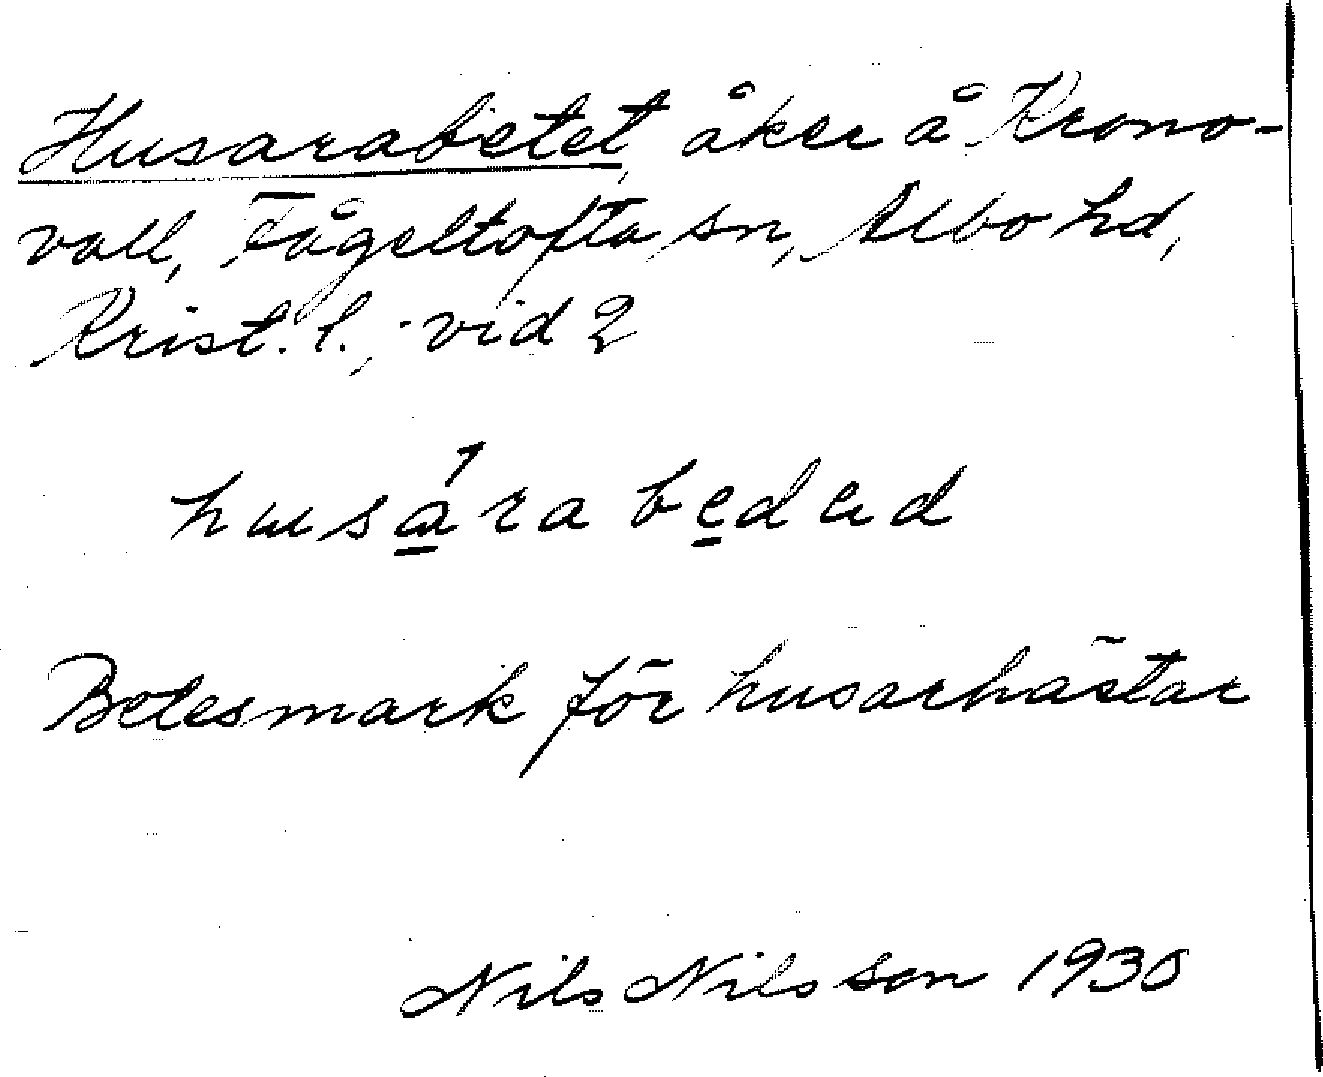 Husarabetet, åker å Krono-
vall, Fågeltofta sn, Albo hd,
Krist. l., vid 2
husára bedad
Betesmark för husarhästar
Nils Nilsson 1930